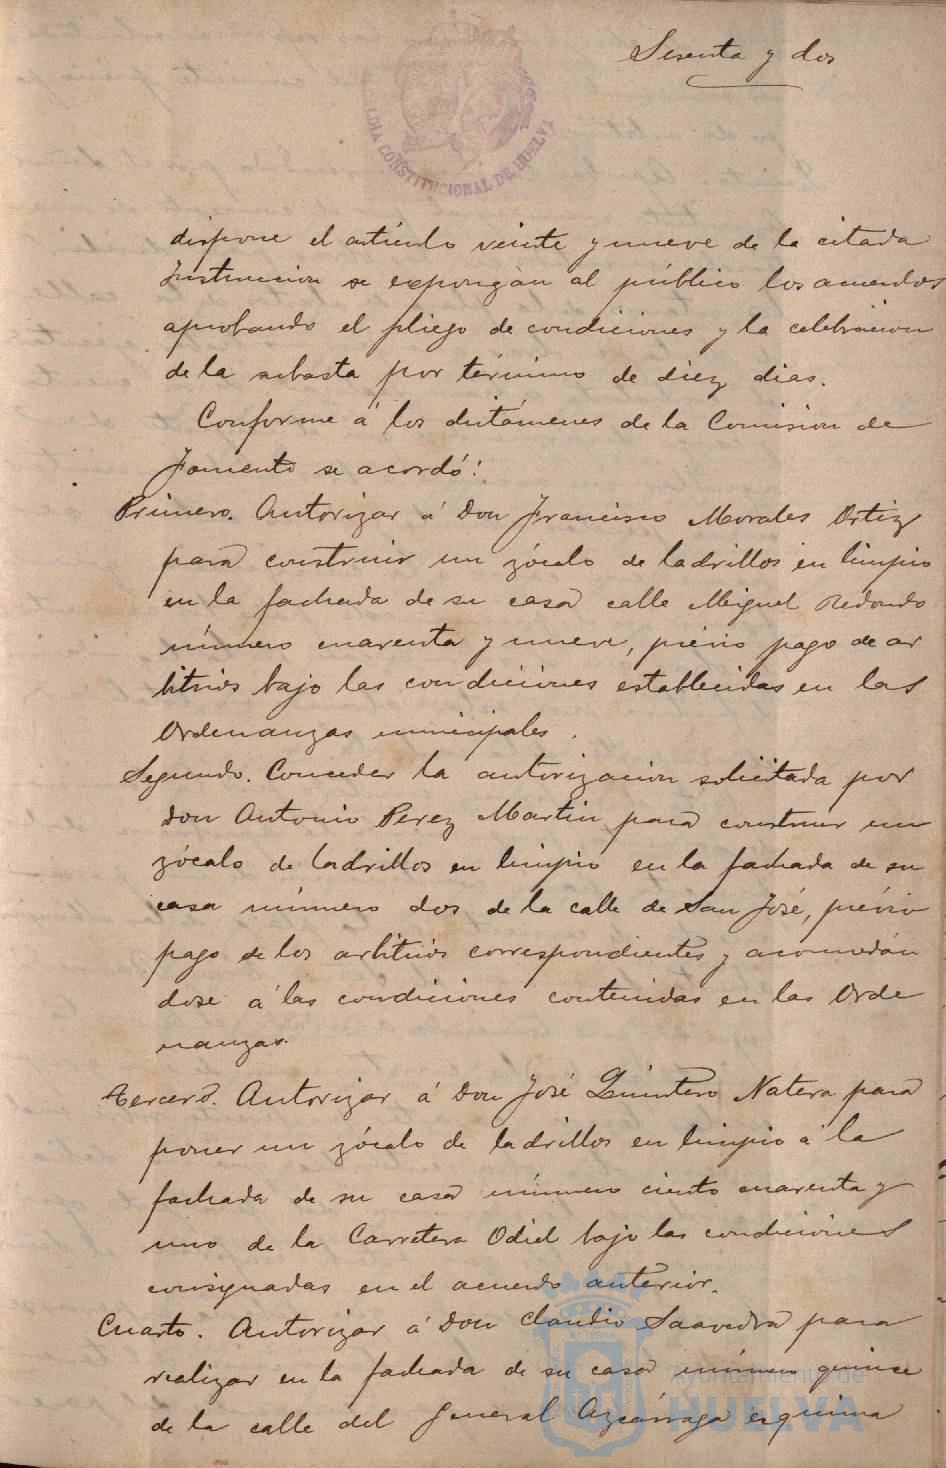 Sesenta y dos
ALCALDIA CONSTITUCIONAL DE HUELVA
dispone el artículo veinte y nueve de la citada
Instruccion se expongan al público los acuerdos
aprobando el pliego de condiciones y la celebracion
de la subasta por término de diez dias.
Conforme á los dictámenes de la Comision de
Fomento se acordó:
Primero. Autorizar á Don Francisco Morales Ortiz
para construir un zócalo de ladrillos en limpio
en la fachada de su casa calle Miguel Redondo
número cuarenta y nueve, prévio pago de ar
bitrios bajo las condiciones establecidas en las
Ordenanzas municipales.
Segundo. Conceder la autorizacion solicitada por
Don Antonio Perez Martin para construir un
zócalo de ladrillos en limpio en la fachada de su
casa número dos de la calle de San José, prévio
pago de los arbitrios correspondientes y acomodán
dose á las condiciones contenidas en las Orde
nanzas.
Tercero. Autorizar á Don José Quintero Natera para
poner un zócalo de ladrillos en limpio á la
fachada de su casa número ciento cuarenta y
uno de la Carretera Odiel bajo las condiciones
consignadas en el acuerdo anterior.
Cuarto. Autorizar á Don Claudio Saavedra para
realizar en la fachada de su casa número quince
de la calle del General Azcárraga esquina
Ayuntamiento de
HUELVA